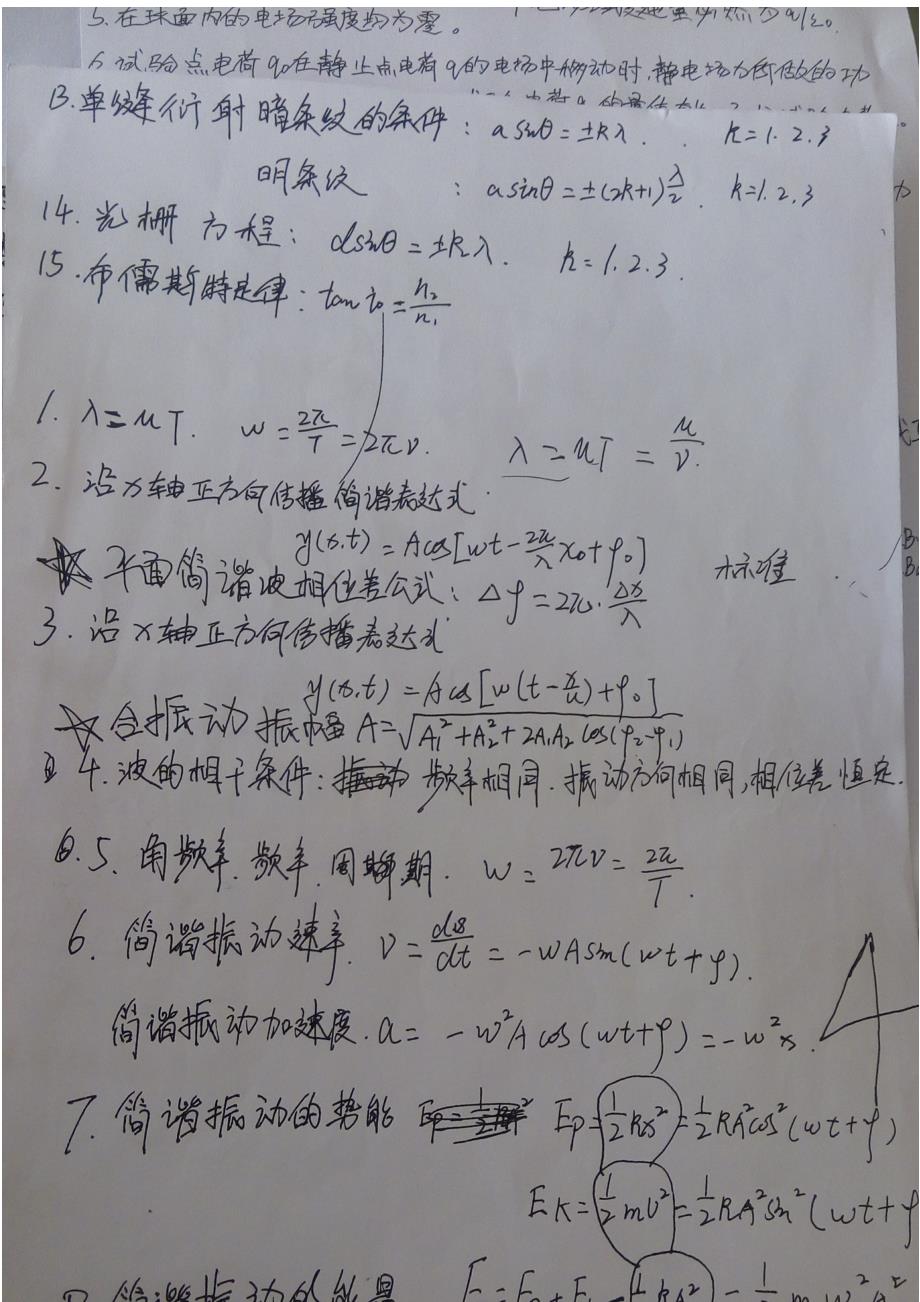 5. 在球面内的电场强度均为零。
6. 试验点电荷q₀在静止点电荷q的电场中移动时,静电场力所做的功
13. 单缝衍射暗条纹的条件: a sinθ = ±kλ. k=1.2.3
明条纹 : a sinθ = ±(2k+1)λ/2. k=1.2.3
14. 光栅方程: d sinθ = ±kλ. k=1.2.3.
15. 布儒斯特定律: tan i₀ = n₂/n₁
1. λ=uT. w = 2π/T = 2πν. λ=uT = u/ν.
2. 沿x轴正方向传播简谐表达式.
y(x,t) = Acos[wt - 2π/λ x₀ + φ₀]
☆ 平面简谐波相位差公式: Δφ = 2π·Δx/λ 标准
3. 沿x轴正方向传播表达式
y(x,t) = Acos[w(t - x/u) + φ₀]
☆ 合振动振幅 A = √(A₁² + A₂² + 2A₁A₂cos(φ₂-φ₁))
4. 波的相干条件: 频率相同. 振动方向相同, 相位差恒定.
5. 角频率. 频率. 周期. w = 2πν = 2π/T.
6. 简谐振动速率. v = dx/dt = -wAsin(wt+φ).
简谐振动加速度. a = -w²Acos(wt+φ) = -w²x.
7. 简谐振动的势能 Ep = ½kx² = ½kA²cos²(wt+φ)
Ek = ½mv² = ½kA²sin²(wt+φ
简谐振动的能量